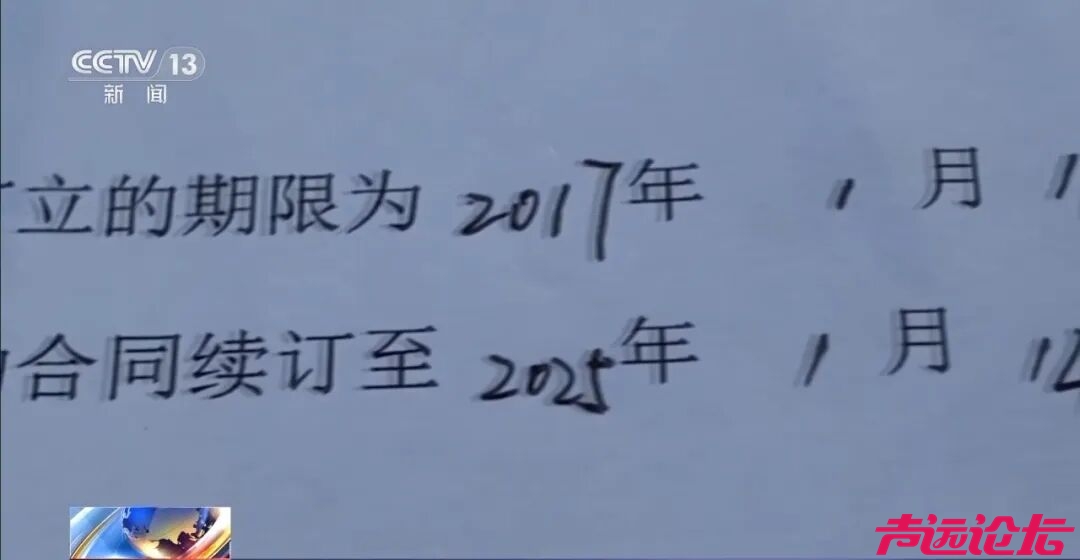 CCTV 13
新闻
立的期限为 2017年 1月 1
合同续订至 2025年 1月 1
声远论坛